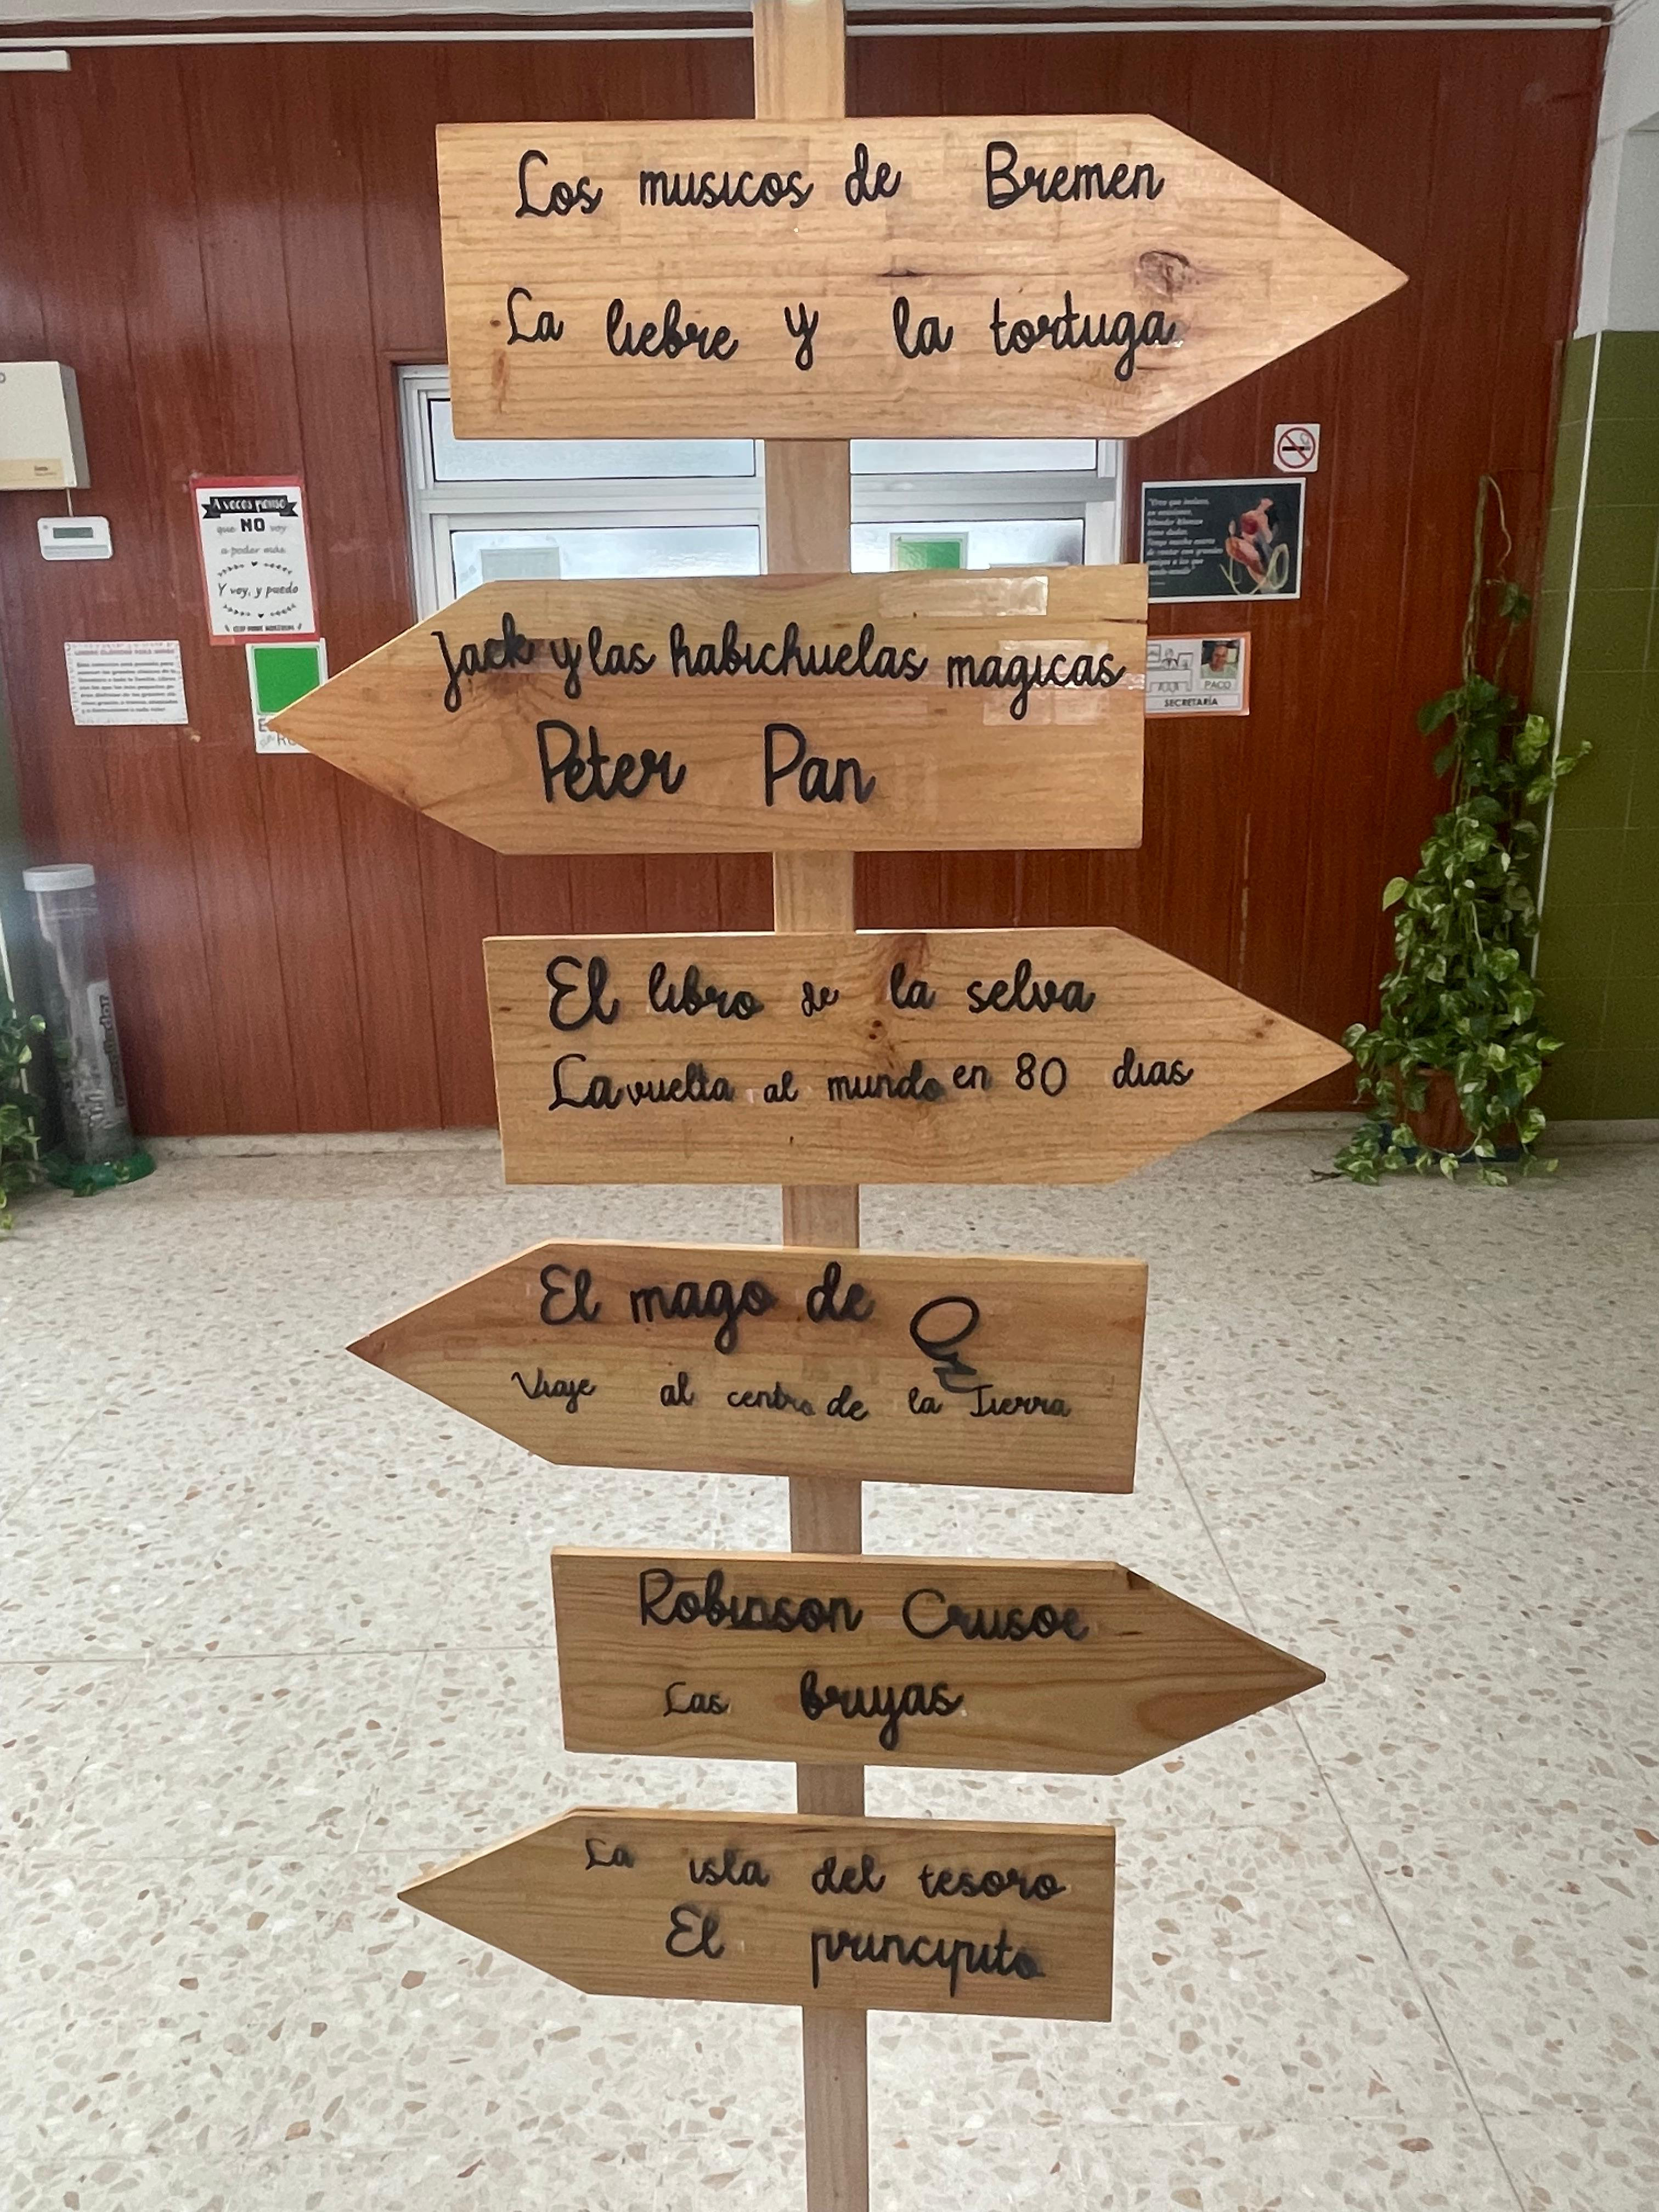 Los musicos de Bremen
La liebre y la tortuga
A veces pienso
que NO voy
a poder más.
Y voy, y puedo
Jack y las habichuelas magicas
Peter Pan
PACO
SECRETARÍA
El libro de la selva
La vuelta al mundo en 80 dias
El mago de Oz
Viaje al centro de la Tierra
Robinson Crusoe
Las brujas
La isla del tesoro
El principito